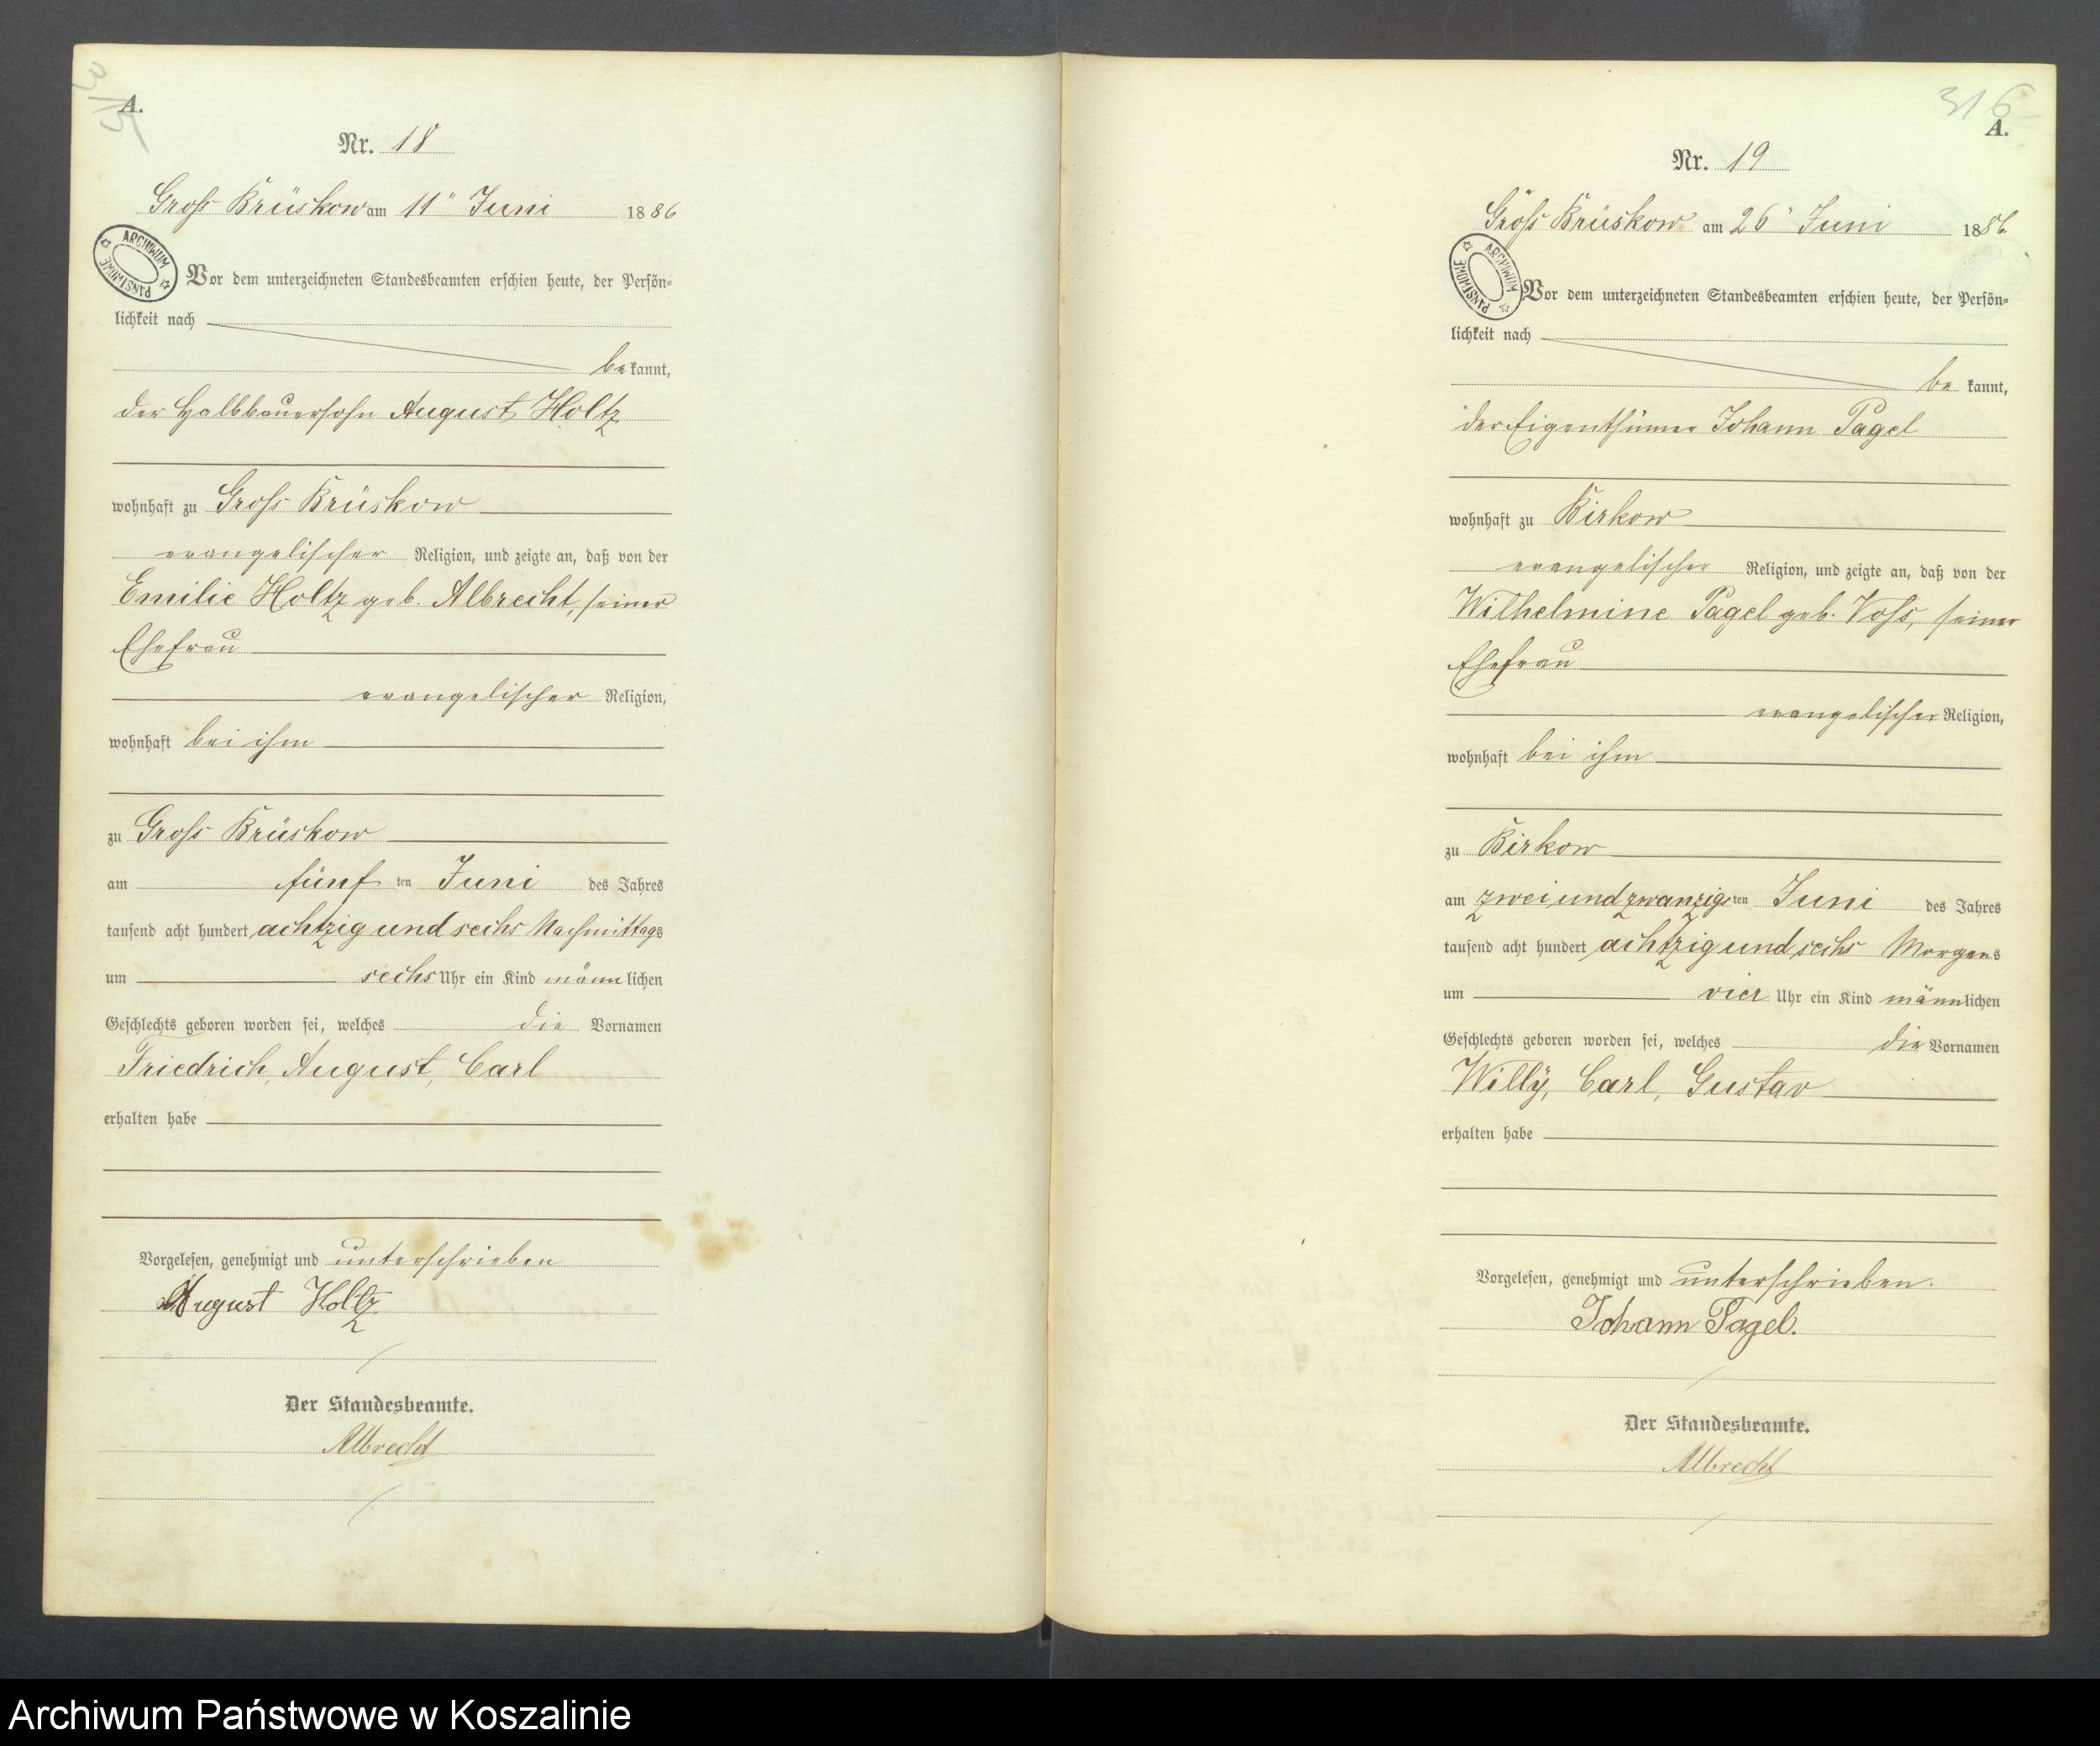 315
A.
Nr. 18
Groß Krüskow am 11" Juni 1886
ARCHIWUM PAŃSTWOWE
Vor dem unterzeichneten Standesbeamten erschien heute, der Persön-
lichkeit nach
bekannt,
der Halbbauersohn August Holtz
wohnhaft zu Groß Krüskow
evangelischer Religion, und zeigte an, daß von der
Emilie Holtz geb. Albrecht, seiner
Ehefrau
evangelischer Religion,
wohnhaft bei ihm
zu Groß Krüskow
am fünf ten Juni des Jahres
tausend acht hundert achtzig und sechs Nachmittags
um sechs Uhr ein Kind männlichen
Geschlechts geboren worden sei, welches die Vornamen
Friedrich, August, Carl
erhalten habe
Vorgelesen, genehmigt und unterschrieben
August Holtz
Der Standesbeamte.
Albrecht
316
A.
Nr. 19
Groß Krüskow am 26" Juni 1886
ARCHIWUM PAŃSTWOWE
Vor dem unterzeichneten Standesbeamten erschien heute, der Persön-
lichkeit nach
be kannt,
der Eigenthümer Johann Pagel
wohnhaft zu Birkow
evangelischer Religion, und zeigte an, daß von der
Wilhelmine Pagel geb. Voß, seiner
Ehefrau
evangelischer Religion,
wohnhaft bei ihm
zu Birkow
am zwei und zwanzigsten Juni des Jahres
tausend acht hundert achtzig und sechs Morgens
um vier Uhr ein Kind männlichen
Geschlechts geboren worden sei, welches die Vornamen
Willÿ, Carl, Gustav
erhalten habe
Vorgelesen, genehmigt und unterschrieben.
Johann Pagel.
Der Standesbeamte.
Albrecht
Archiwum Państwowe w Koszalinie